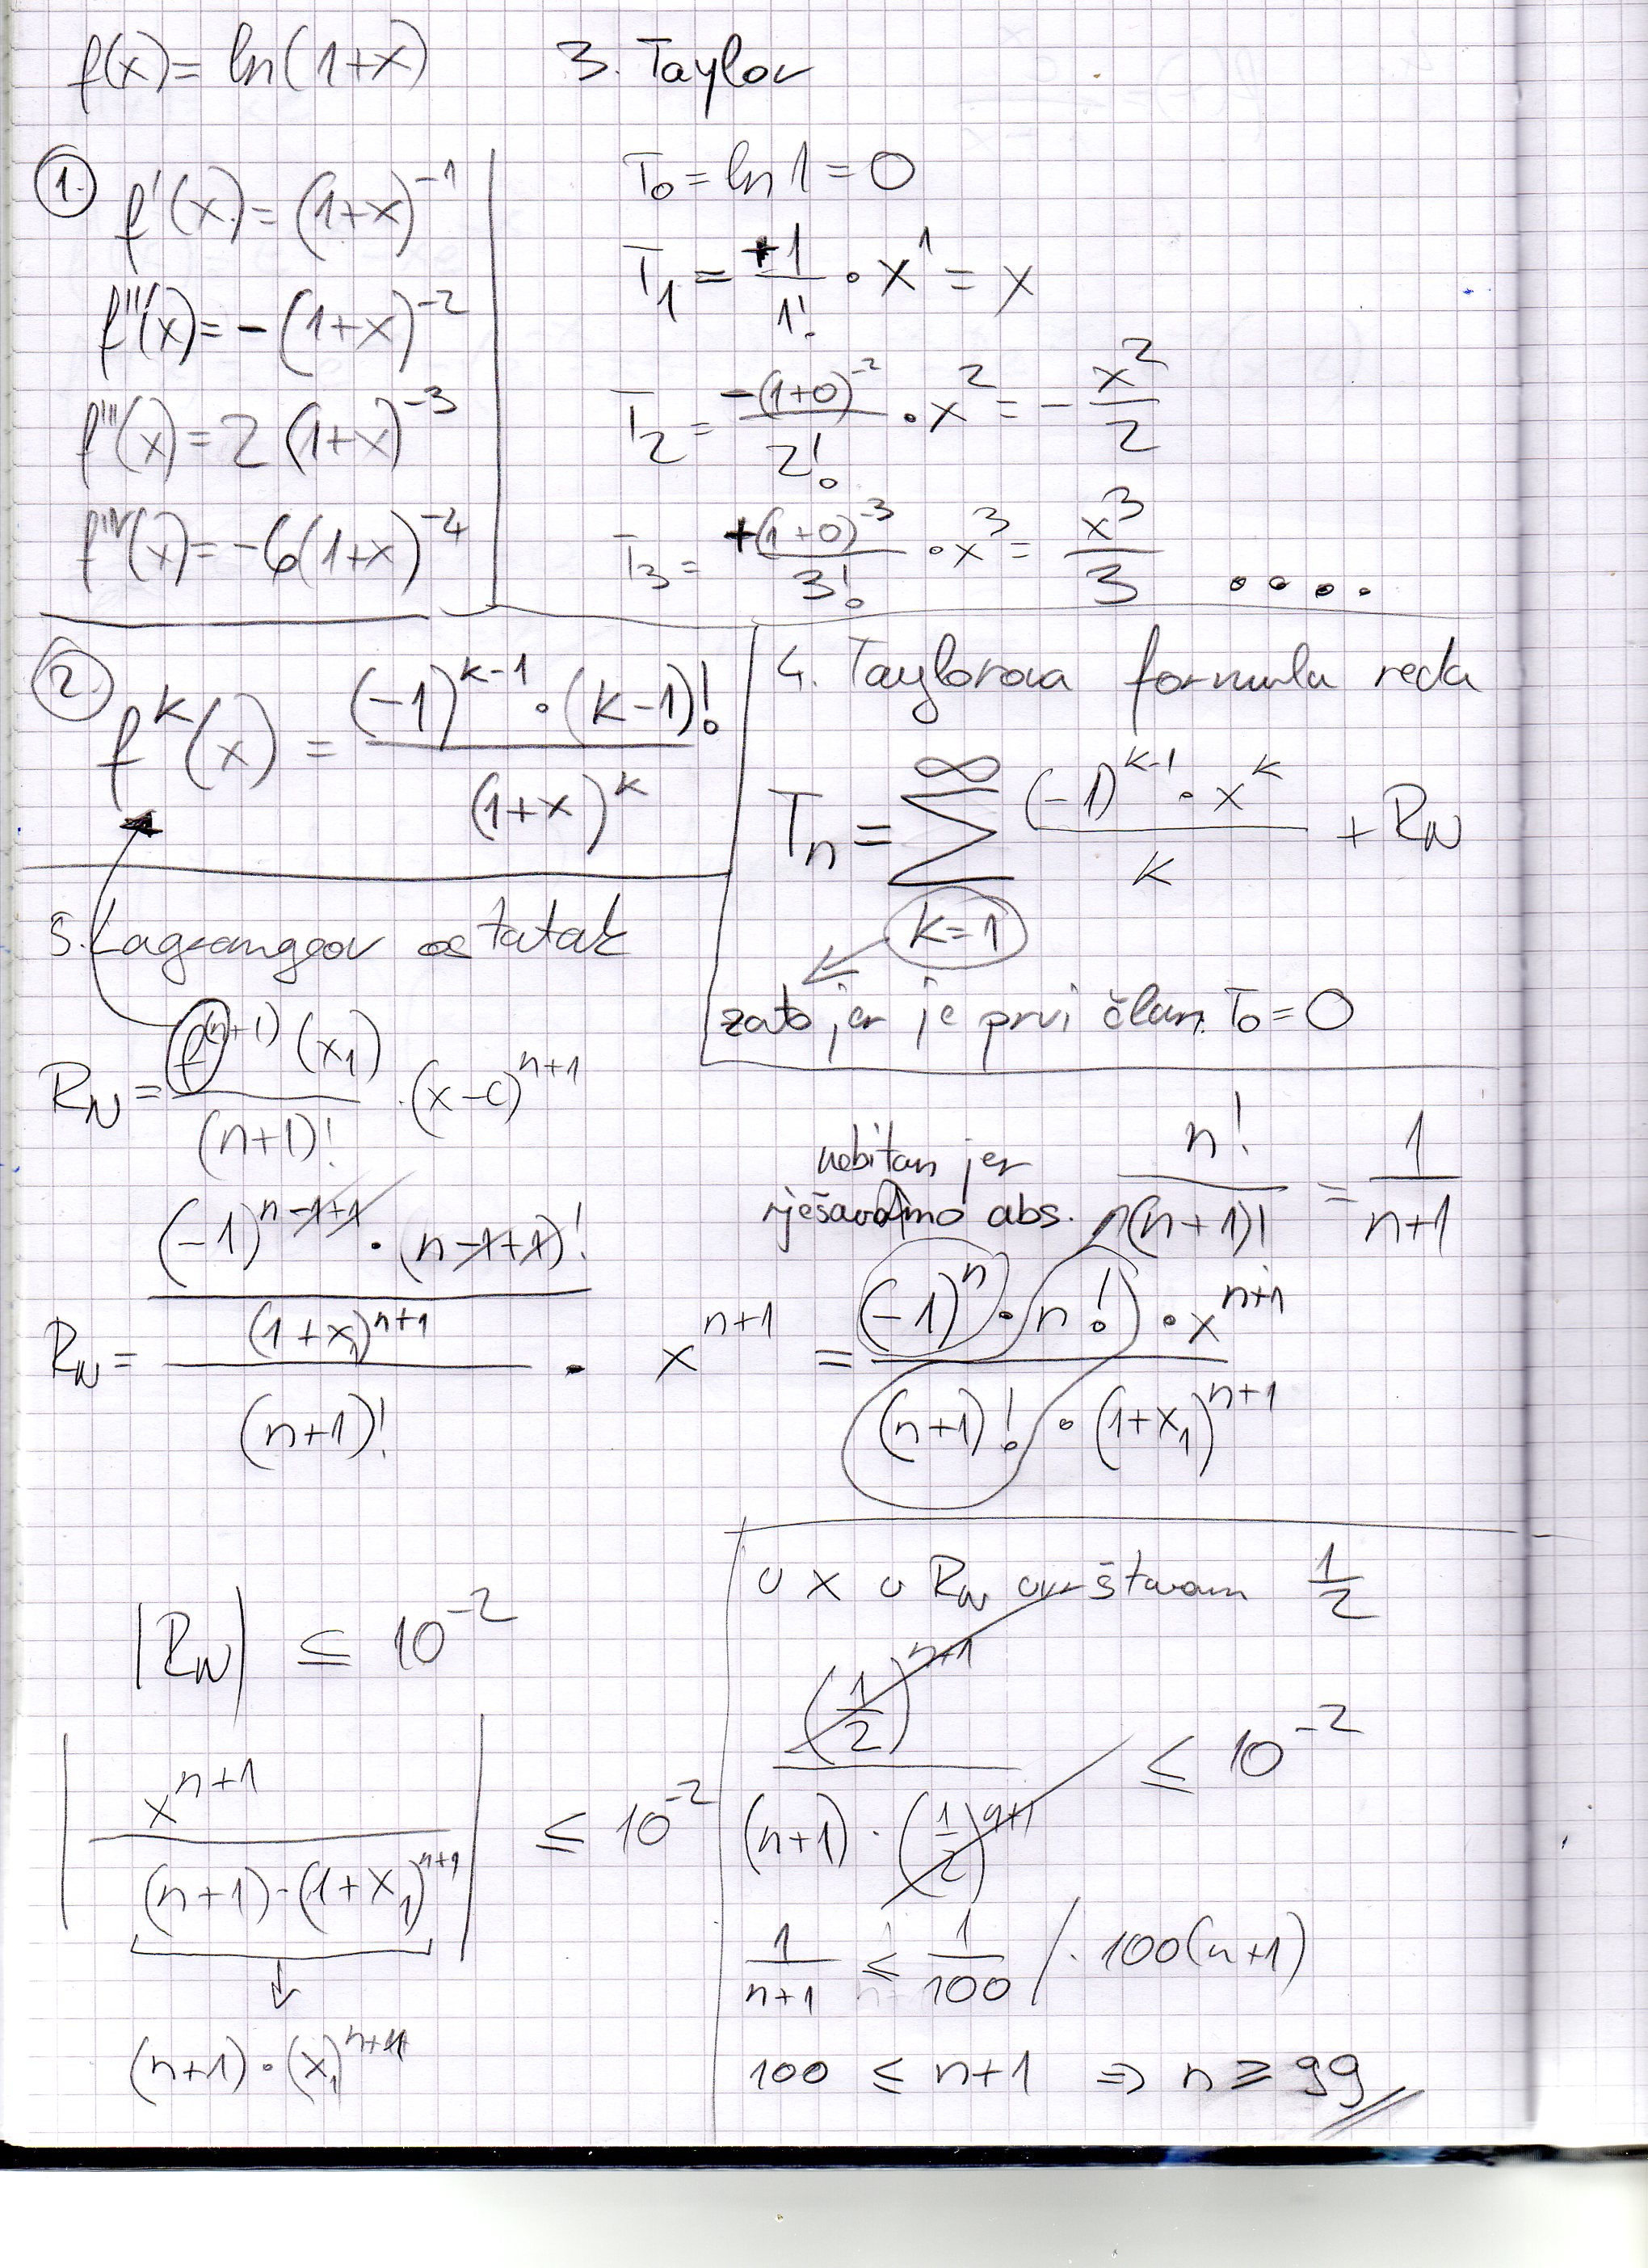 f(x) = ln(1+x)
3. Taylor
1.
f'(x) = (1+x)^-1
f''(x) = -(1+x)^-2
f'''(x) = 2(1+x)^-3
f^IV(x) = -6(1+x)^-4
T₀ = ln 1 = 0
T₁ = +1/1! · x^1 = x
T₂ = -(1+0)^-2/2! · x^2 = - x^2/2
T₃ = +(1+0)^-3/3! · x^3 = x^3/3 ....
2.
f^k(x) = (-1)^(k-1) · (k-1)! / (1+x)^k
4. Taylorova formula reda
Tₙ = ∑ (k=1, ∞) (-1)^(k-1) · x^k / k + R_N
zato jer je prvi član T₀ = 0
5. Lagrangeov ostatak
R_N = f^(n+1)(x₁)/(n+1)! · (x-c)^(n+1)
nebitan jer
rješavamo abs.
n!/(n+1)! = 1/(n+1)
R_N = (-1)^(n-1+1) · (n-1+1)! / (1+x₁)^(n+1) / (n+1)! · x^(n+1) = (-1)^n · n! · x^(n+1) / (n+1)! · (1+x₁)^(n+1)
|R_N| ≤ 10^-2
|x^(n+1) / (n+1)·(1+x₁)^(n+1)| ≤ 10^-2
(n+1) · (x₁)^(n+1)
U x u R_N uvrštavam 1/2
(1/2)^(n+1) / (n+1) · (1/2)^(n+1) ≤ 10^-2
1/(n+1) ≤ 1/100 / · 100(n+1)
100 ≤ n+1 ⇒ n ≥ 99